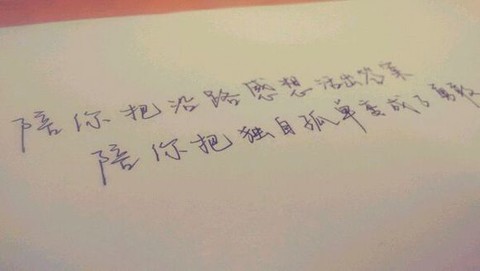 陪你把沿路感想活出答案
陪你把独自孤单变成了勇敢